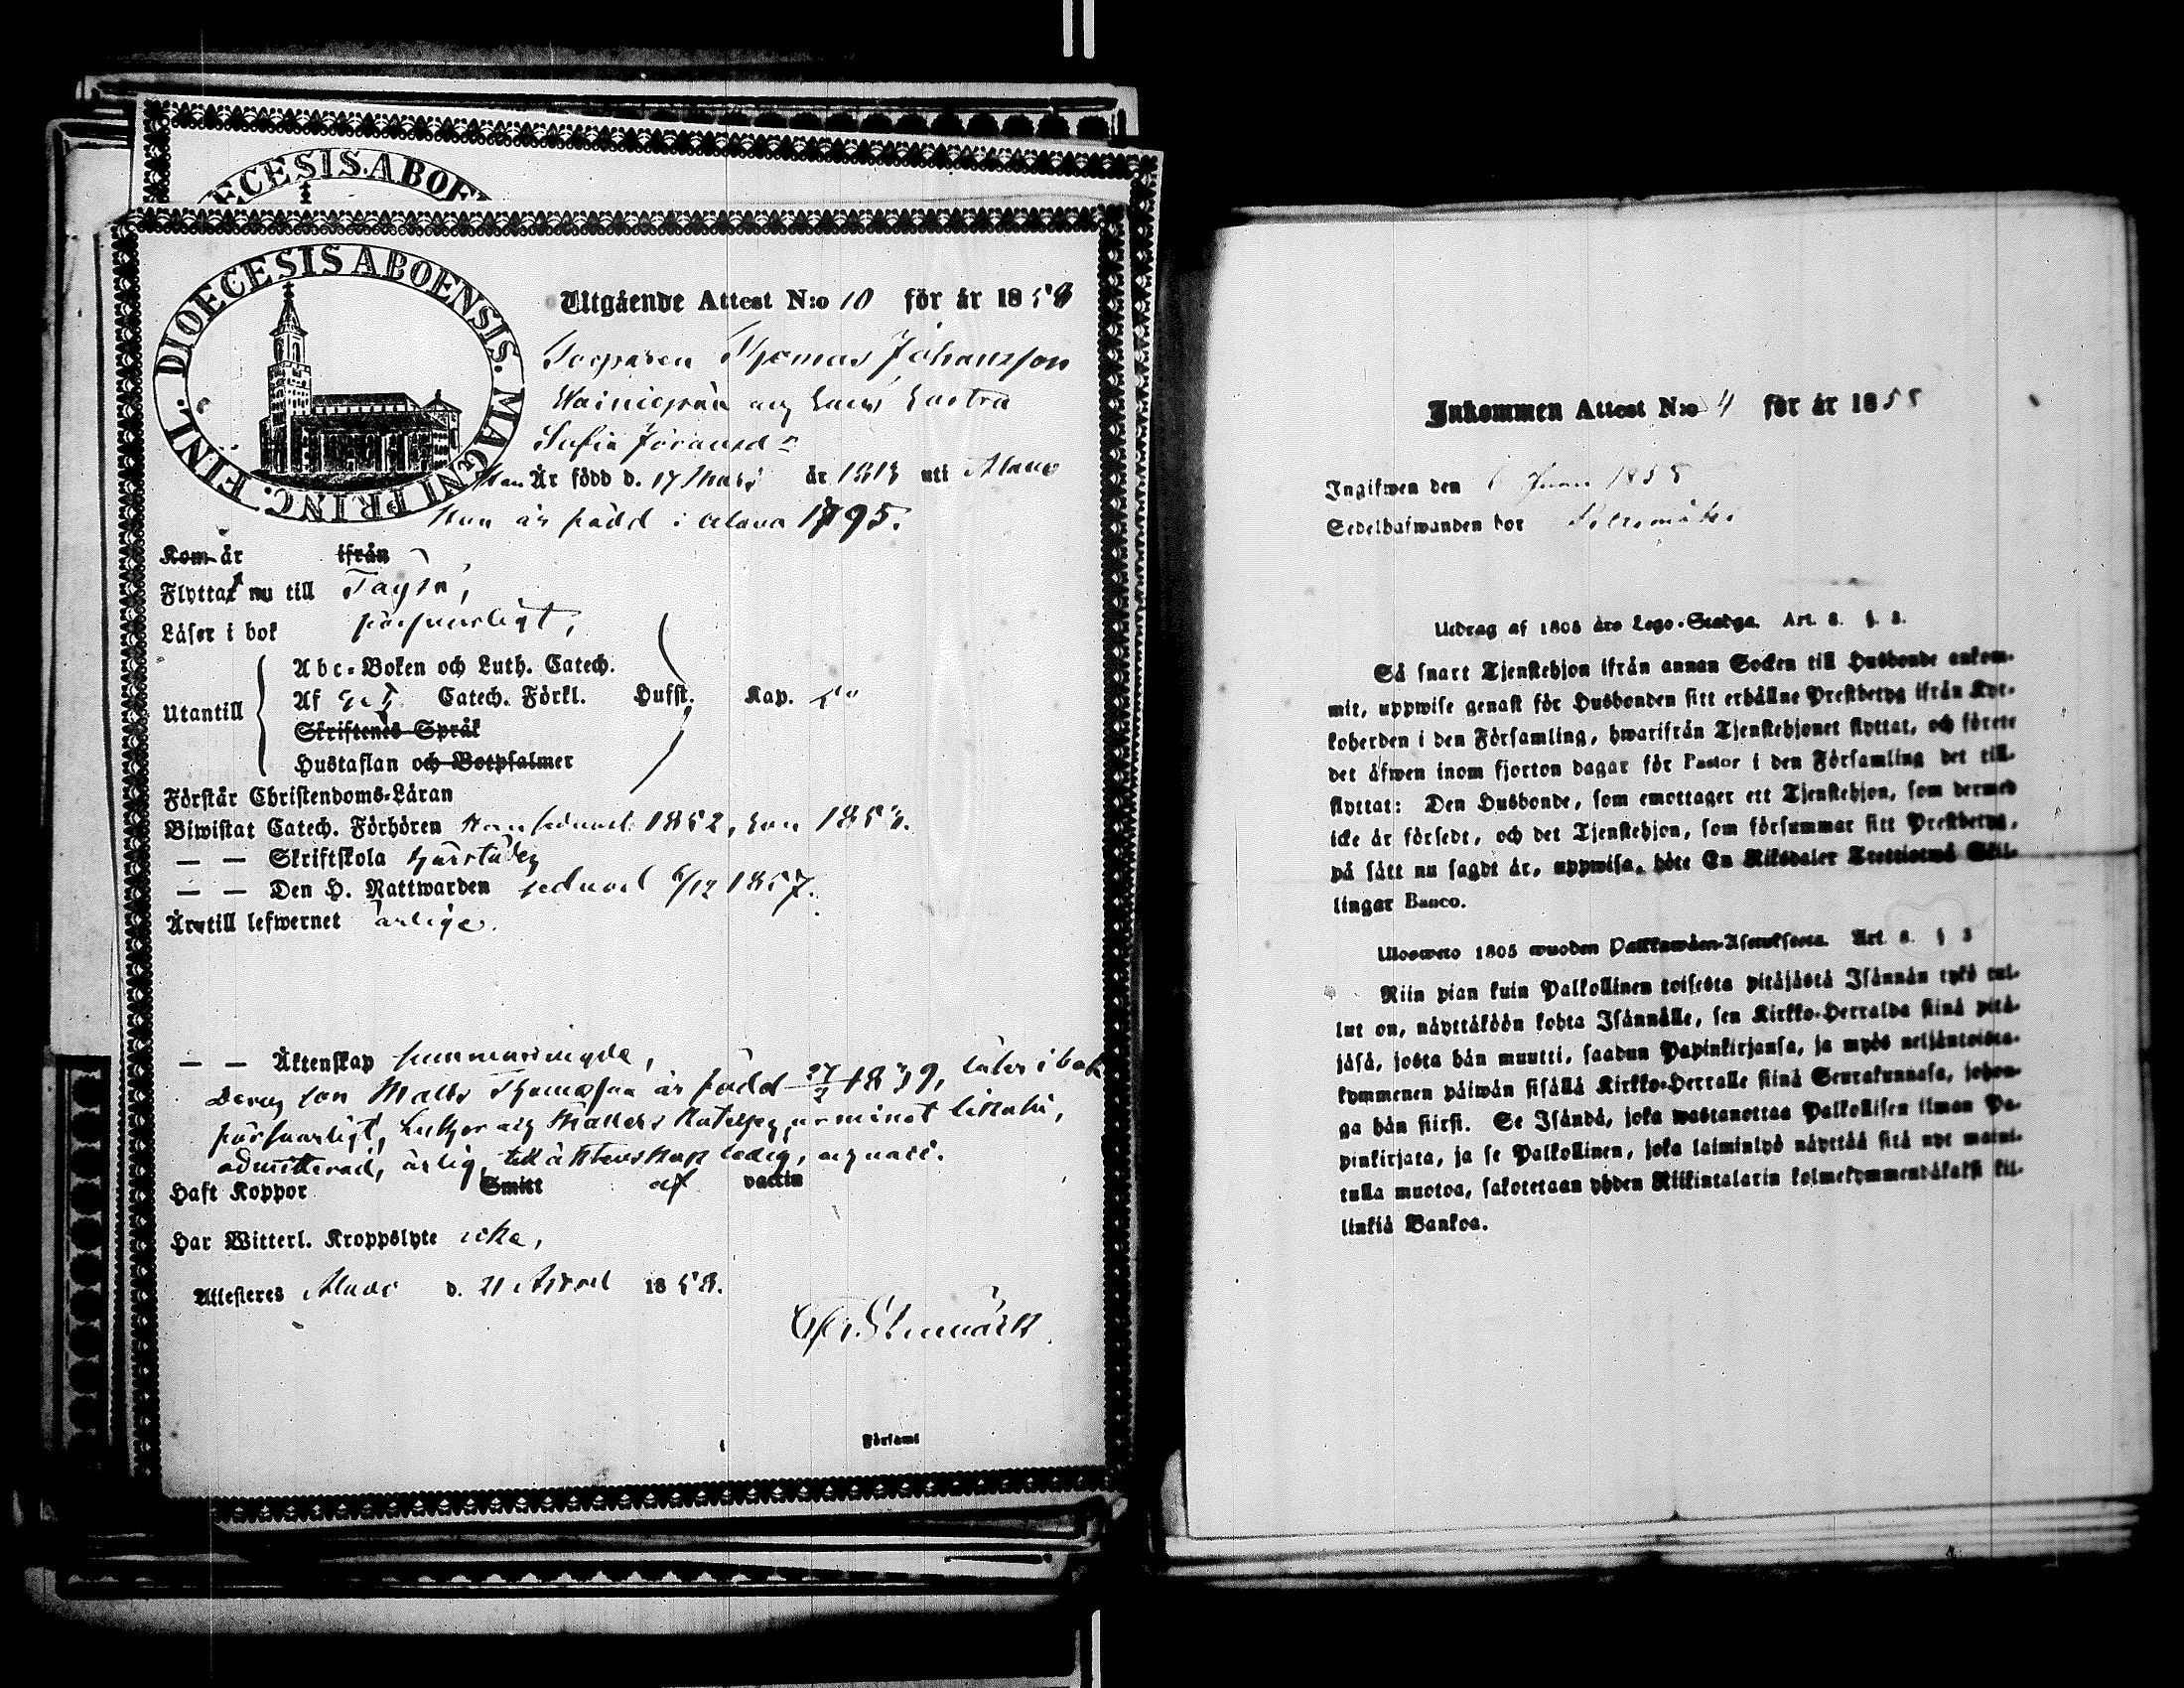 ECESIS.ABOE
DIOECESIS ABOENSIS. MAGNI PRINC. FINL.
Utgående Attest N:o 10 för år 1858
Thomas Johansson
Sofia
Han Är född d. 17 Mars år 1818 uti Alavo
Hon är född i Alavo 1795.
Kom år ifrån
Flyttar nu till
Läser i bok försvarligt,
Abc-Boken och Luth. Catech.
Utantill Af Catech. Förkl. Hufst. Kap.
Skriftenes Språk
Hustaflan och Botpsalmer
Förstår Christendoms-Läran
Biwistat Catech. Förhören Han sednast 1852, hon 1853.
— — Skriftskola härstädes
— — Den H. Nattwarden sednast 6/12 1857.
Är till lefwernet ärliga.
— — Äktenskap
Deras son Matts Thomasson är född 27 1839, läser i bok
försvarligt, Luthers
admitterad, ärlig, till äktenskap ledig,
Haft Koppor Smitt af vaccin
Har Witterl. Kroppslyte icke,
Attesteres Alavo d. 21 April 1858.
Församl
Inkommen Attest N:o 4 för år 1855
Ingifwen den 6 Juni 1855
Sedelhafwanden bor
Utdrag af 1805 års Lego-Stadga. Art. 8. §. 3.
Så snart Tjenstehjon ifrån annan Socken till Husbonde ankom-
mit, uppwise genast för Husbonden sitt erhållne Prestbetyg ifrån Kyr-
koherden i den Församling, hwarifrån Tjenstehjonet flyttat, och förete
det äfwen inom fjorton dagar för Pastor i den Församling det till-
flyttat: Den Husbonde, som emottager ett Tjenstehjon, som dermed
icke är försedt, och det Tjenstehjon, som försummar sitt Prestbetyg,
på sätt nu sagdt är, uppwisa, böte En Riksdaler Trettiotwå Skil-
lingar Banco.
Ulosweto 1805 wuoden Palkkawäen-Asetuksesta. Art. 8. § 3
Niin pian kuin Palkollinen toisesta pitäjästä Isännän tykö tul-
lut on, näyttäköön kohta Isännälle, sen Kirkko-Herralda siinä pitä-
jäsä, josta hän muutti, saadun Papinkirjansa, ja myös neljäntoista-
kymmenen päiwän sisällä Kirkko-Herralle siinä Seurakunnasa, johon-
ga hän siirsi. Se Isändä, joka wastanottaa Palkollisen ilman Pa-
pinkirjata, ja se Palkollinen, joka laiminlyö näyttää sitä nyt maini-
tulla muotoa, sakotetaan yhden Riikintalarin kolmekymmendäkaksi kil-
linkiä Bankoa.